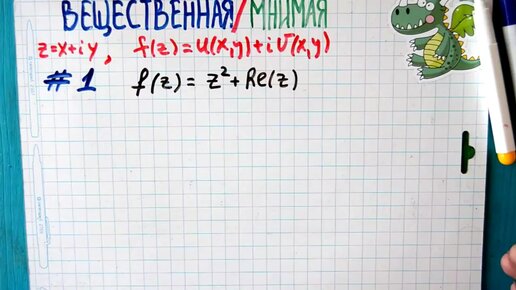 ВЕЩЕСТВЕННАЯ/МНИМАЯ
z=x+iy, f(z)=u(x,y)+iv(x,y)
#1 f(z)=z²+Re(z)